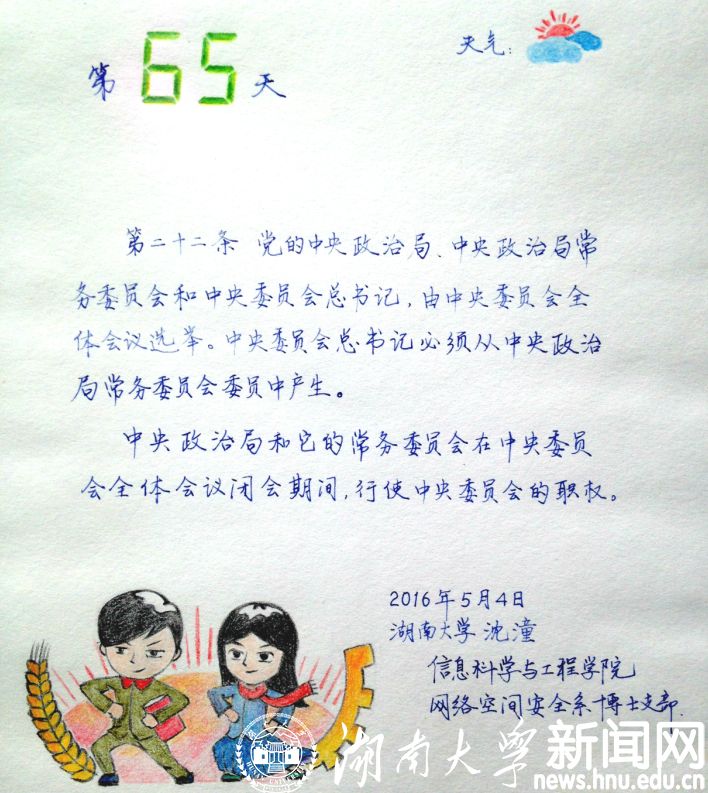 第65天
天气:
第二十二条 党的中央政治局、中央政治局常
务委员会和中央委员会总书记,由中央委员会全
体会议选举。中央委员会总书记必须从中央政治
局常务委员会委员中产生。
中央政治局和它的常务委员会在中央委员
会全体会议闭会期间,行使中央委员会的职权。
2016年5月4日
湖南大学 沈潼
信息科学与工程学院
网络空间安全系博士支部.
湖南大学新闻网
news.hnu.edu.cn